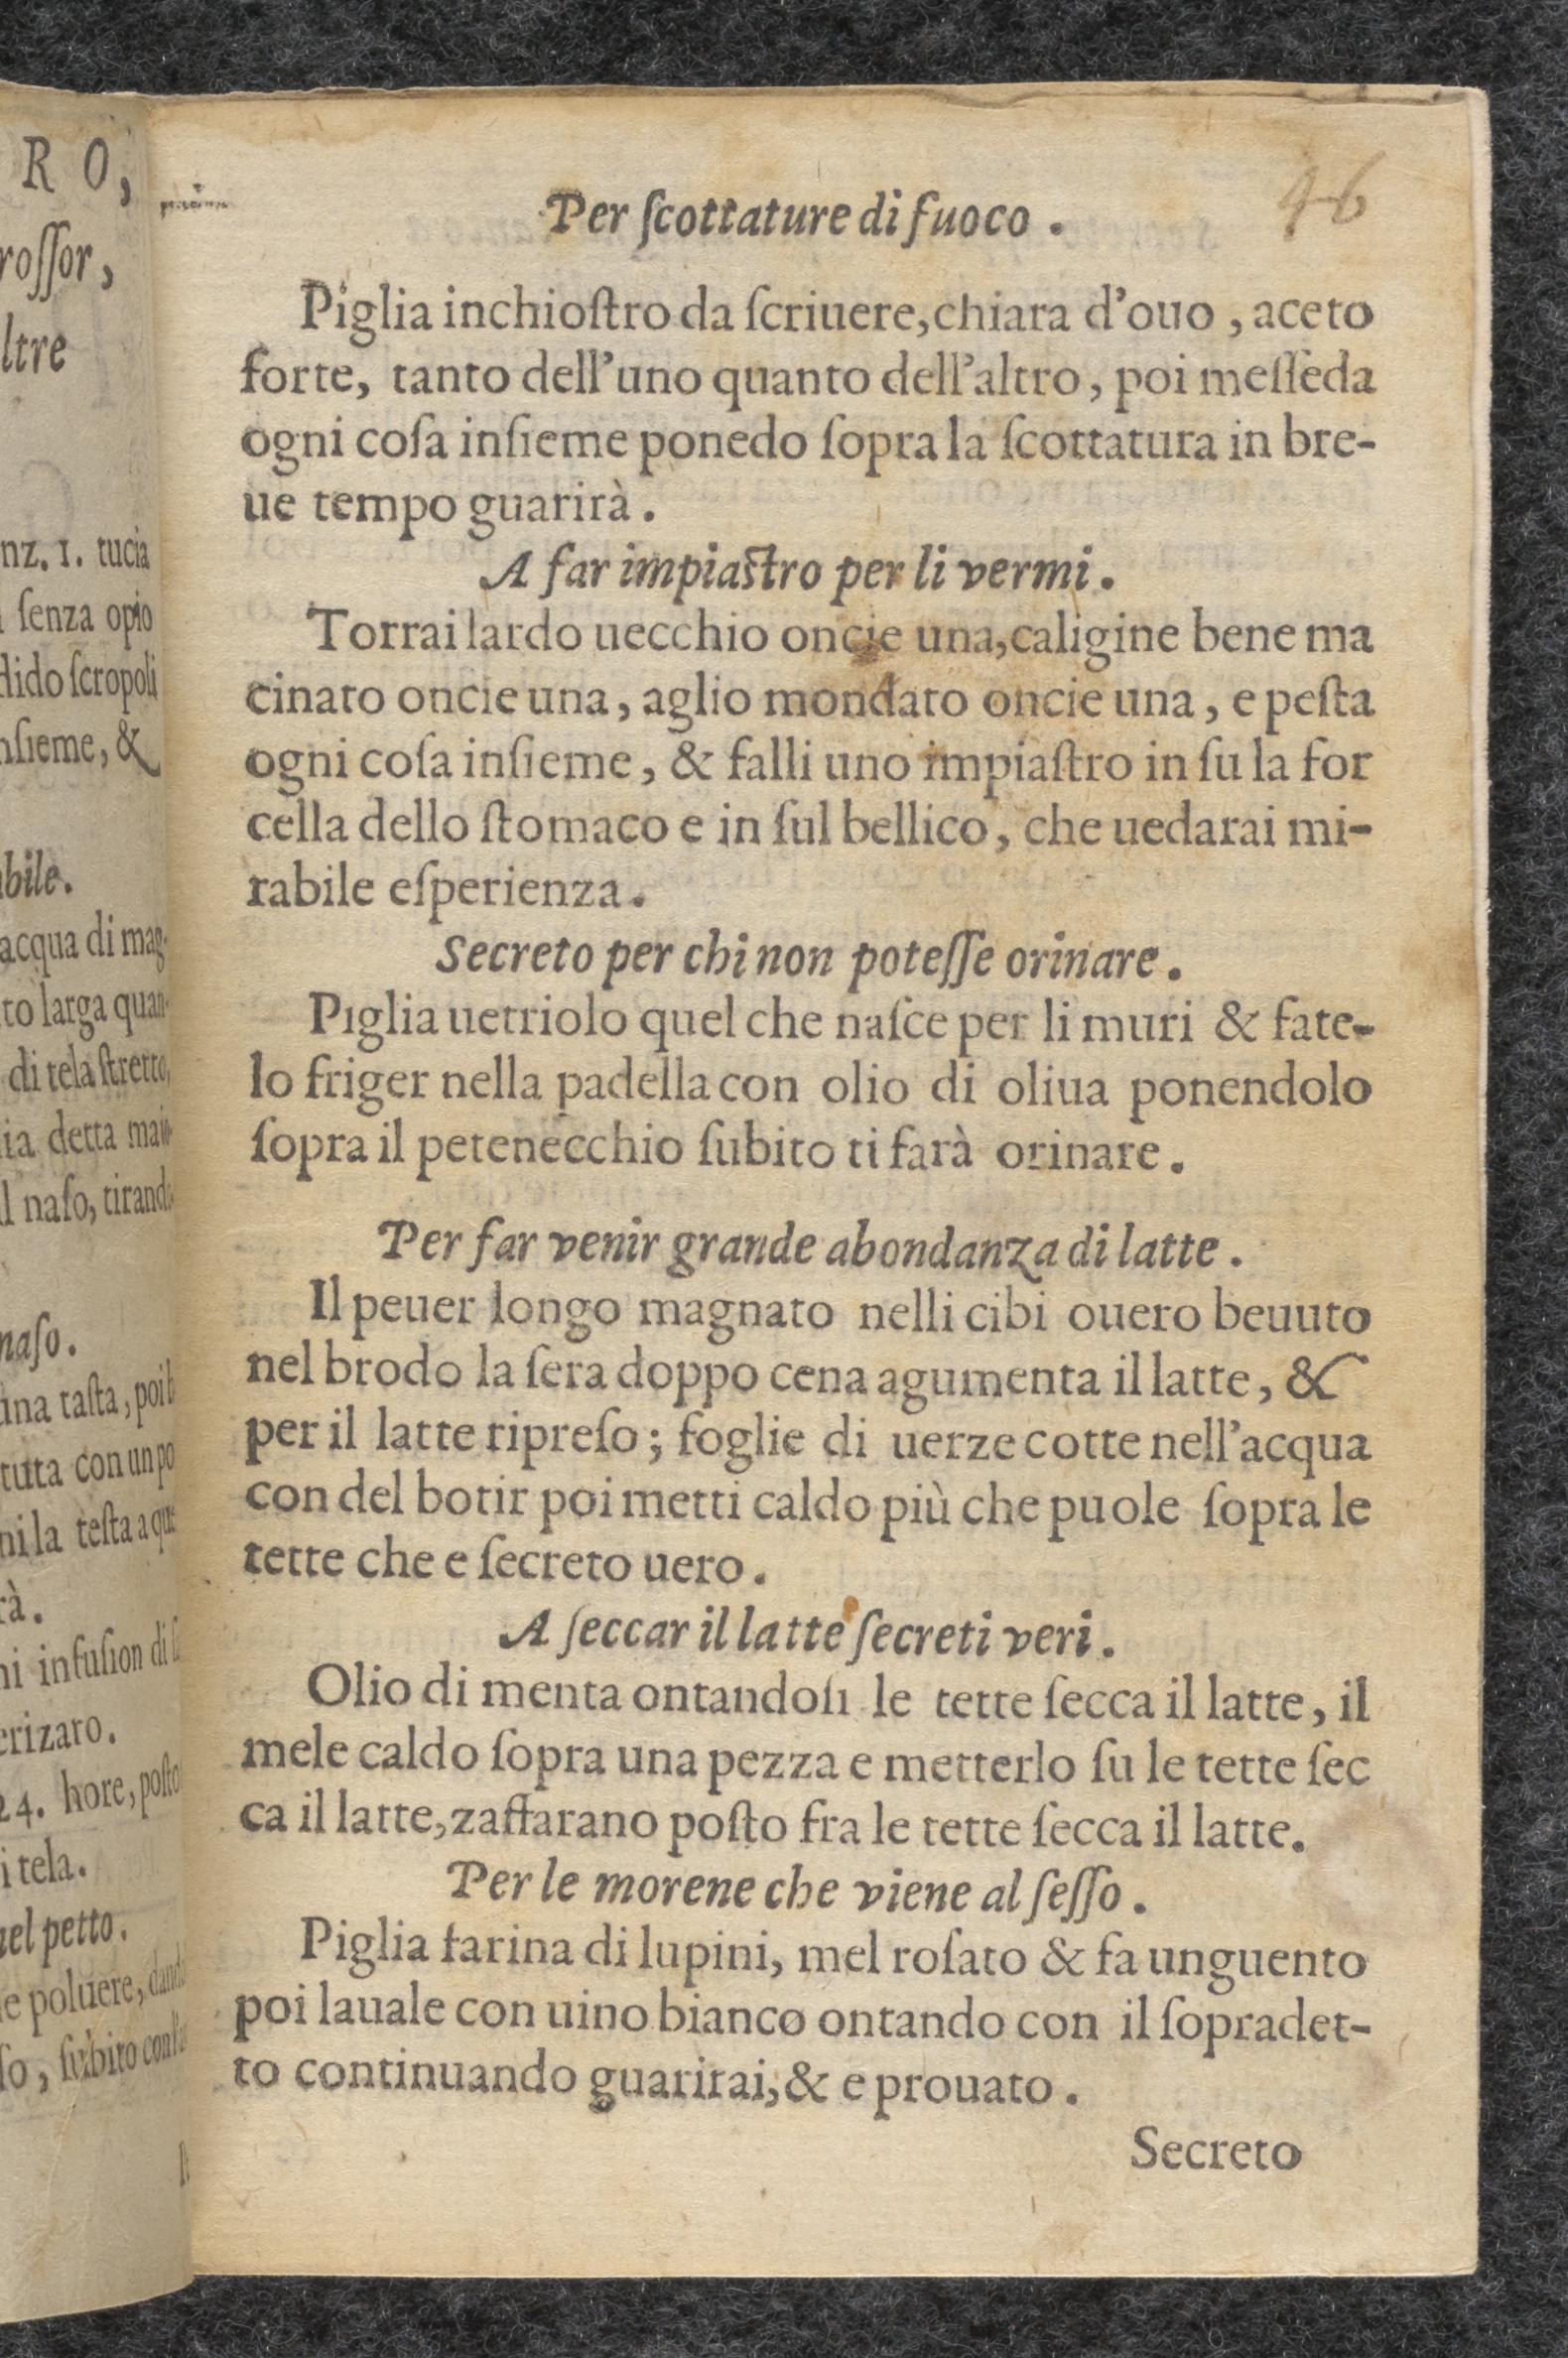 R O,
roſſor,
ltre
nz. 1. tucia
ſenza opio
dido ſcropoli
nſieme, &
bile.
acqua di mag-
to larga quan-
di tela ſtretto,
ia detta
l naſo, tirand
naſo.
una taſta, poi
tuta con un po
ni la teſta a
rà.
ni infuſion di
erizato.
24. hore, poſto
i tela.
nel petto.
e poluere,
ſo, ſubito
46
Per ſcottature di fuoco .
Piglia inchioſtro da ſcriuere, chiara d'ouo , aceto
forte, tanto dell'uno quanto dell'altro , poi meſſeda
ogni coſa inſieme ponedo ſopra la ſcottatura in bre-
ue tempo guarirà .
A far impiaſtro per li vermi .
Torrai lardo uecchio oncie una, caligine bene ma
cinato oncie una , aglio mondato oncie una , e peſta
ogni coſa inſieme , & falli uno impiaſtro in ſu la for
cella dello ſtomaco e in ſul bellico , che uedarai mi-
rabile eſperienza .
Secreto per chi non poteſſe orinare .
Piglia uetriolo quel che naſce per li muri & fate-
lo friger nella padella con olio di oliua ponendolo
ſopra il petenecchio ſubito ti farà orinare .
Per far venir grande abondanza di latte .
Il peuer longo magnato nelli cibi ouero beuuto
nel brodo la ſera doppo cena agumenta il latte , &
per il latte ripreſo ; foglie di uerze cotte nell'acqua
con del botir poi metti caldo più che puole ſopra le
tette che e ſecreto uero .
A ſeccar il latte ſecreti veri .
Olio di menta ontandoſi le tette ſecca il latte , il
mele caldo ſopra una pezza e metterlo ſu le tette ſec
ca il latte, zaffarano poſto fra le tette ſecca il latte.
Per le morene che viene al ſeſſo .
Piglia farina di lupini, mel roſato & fa unguento
poi lauale con uino bianco ontando con il ſopradet-
to continuando guarirai, & e prouato .
Secreto